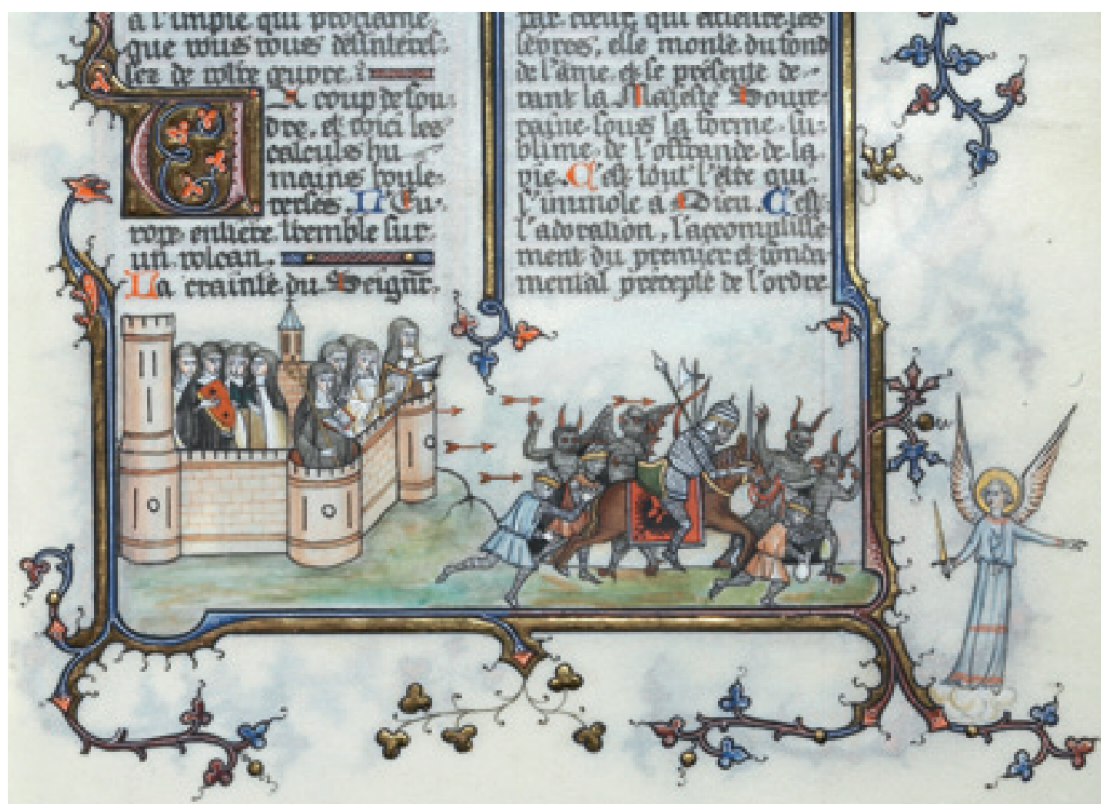 à l'impie qui proclame
que vous vous désintéres-
sez de votre œuvre.
Un coup de fou-
dre, et voici les
calculs hu
mains boule-
versés. L'Eu-
rope entière tremble sur
un volcan.
La crainte du Seignr.
par cœur, qui effleure les
lèvres, elle monte du fond
de l'âme, et se présente de-
vant la Majesté Souve-
raine sous la forme su-
blime de l'offrande de la
vie. C'est tout l'être qui
s'immole à Dieu. C'est
l'adoration, l'accomplisse
ment du premier et fonda
mental précepte de l'ordre